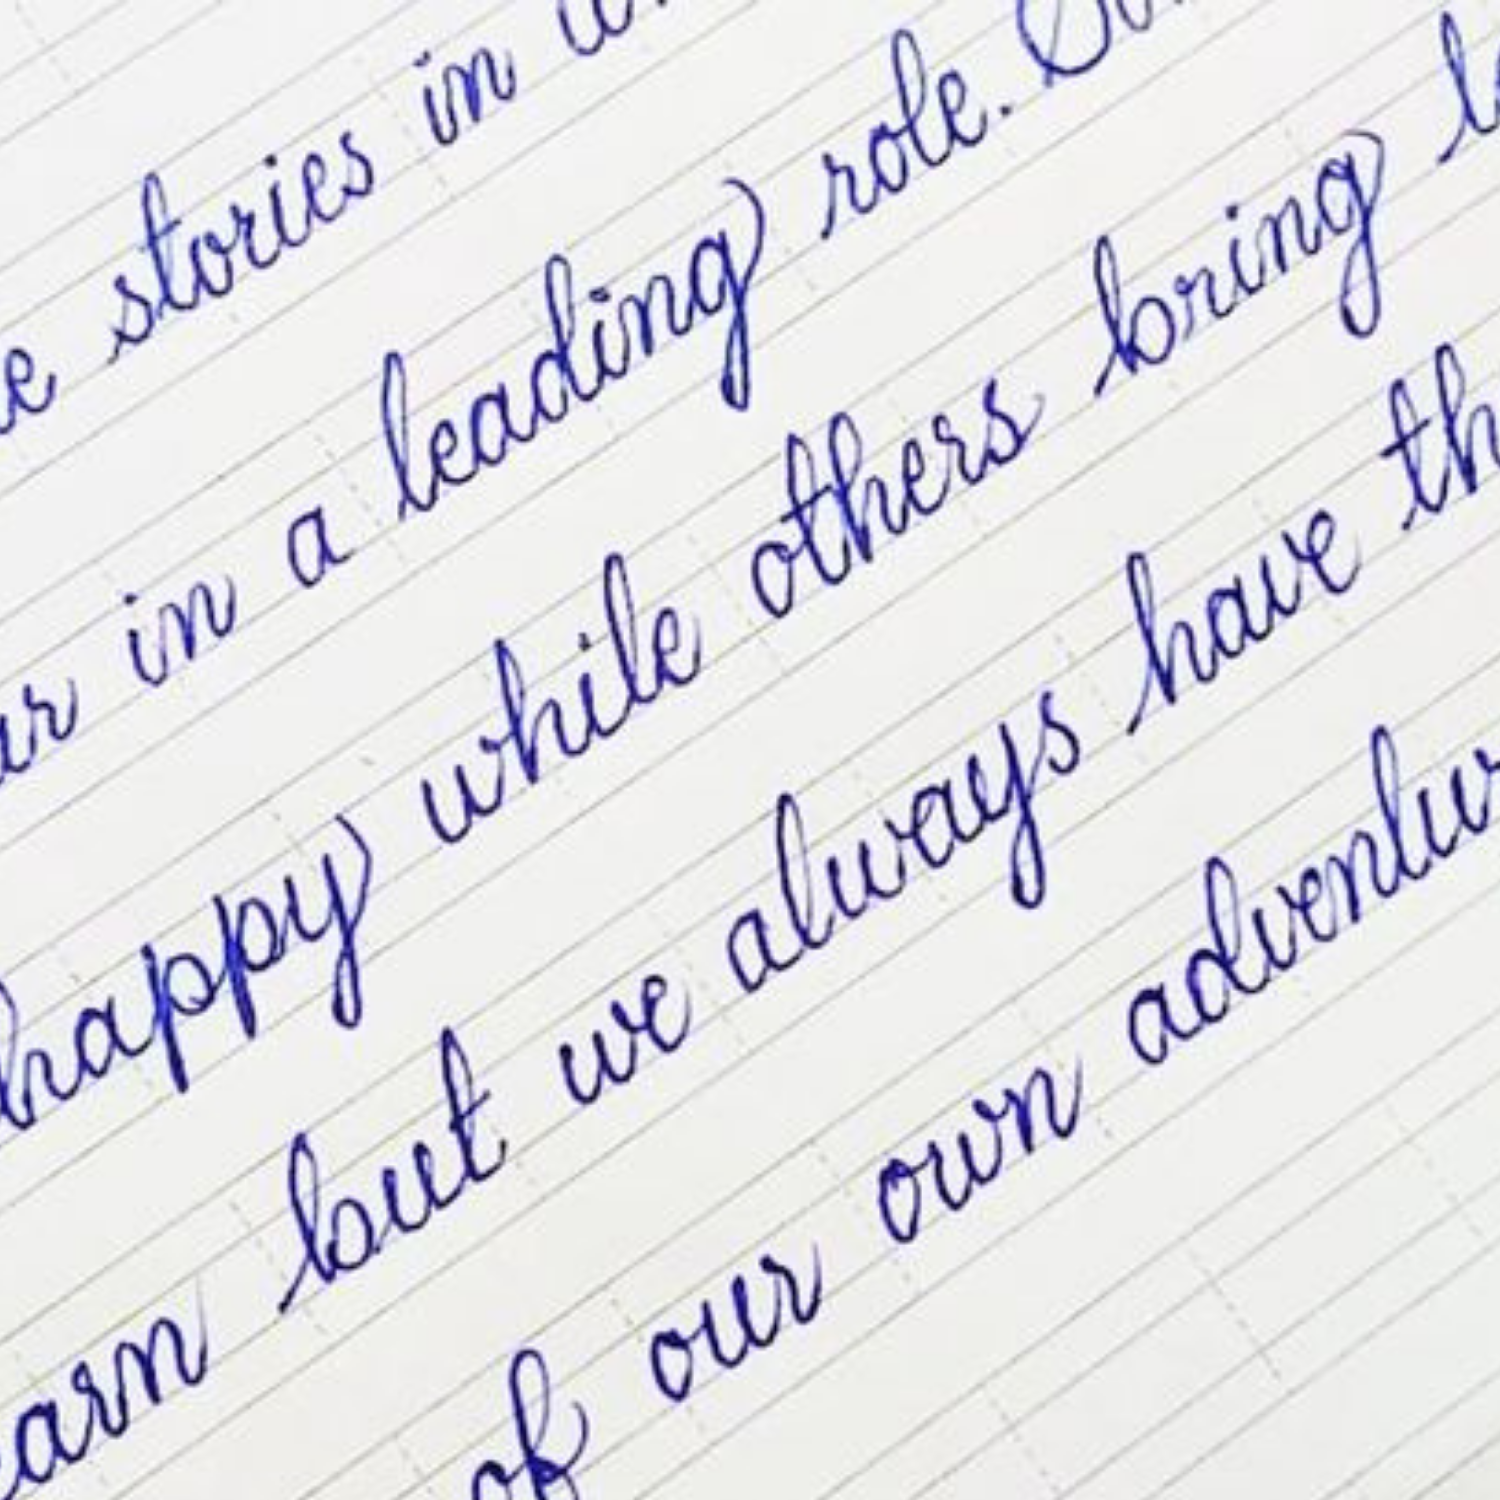 e stories in
ar in a leading role.
happy while others bring
earn but we always have th
of our own adventur